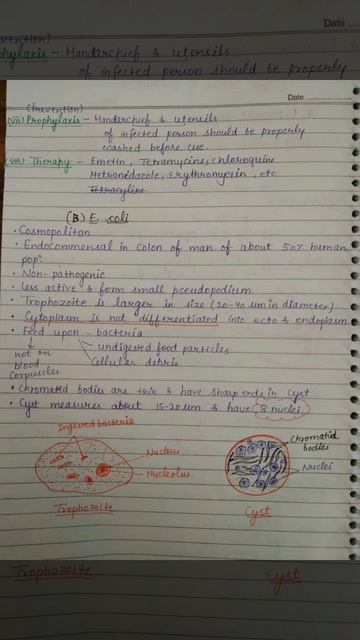 Date
(Prevention)
Prophylaxis - Handerchief & utensils
of infected person should be properly
Date
(Prevention)
(vii) Prophylaxis - Handerchief & utensils
of infected person should be properly
washed before use.
(viii) Therapy - Emetin, Tetramycine, Chloroquin
Metranidazole, Erythromycin, etc
Tetracyline
(B) E. coli
• Cosmopolitan
• Endocommensal in colon of man of about 50% human
popn
• Non-pathogenic
• less active & form small pseudopodium
• Trophozoite is larger in size (20-40 µm in diameter)
• Cytoplasm is not differentiated into ecto & endoplasm
• Feed upon - bacteria
↓ undigested food particles
not on
blood Cellular debris
corpuscles
• Chromatid bodies are thin & have sharp ends in cyst
• Cyst measures about 15-20 µm & have 8 nuclei
Ingested bacteria
Chromatid
bodies
Nucleus
Nuclei
Nucleolus
Trophozoite
Cyst
Trophozoite
Cyst